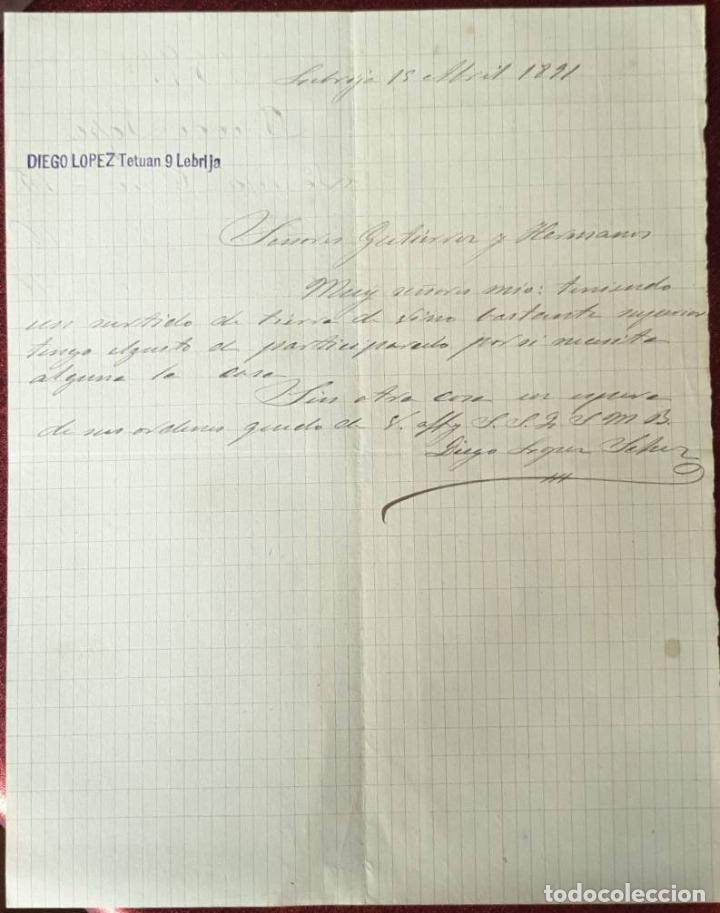 Lebrija 15 Abril 1891
DIEGO LOPEZ Tetuan 9 Lebrija
Señores Gutierrez y Hermanos
Muy señores mio: teniendo
un surtido de tierra de vino bastante superior
tengo elgusto de participarselo por si necesita
alguna la casa
Sin otra cosa en espera
de sus ordenes quedo de V. affº S. S. Q. S. M. B.
Diego Lopez
todocoleccion